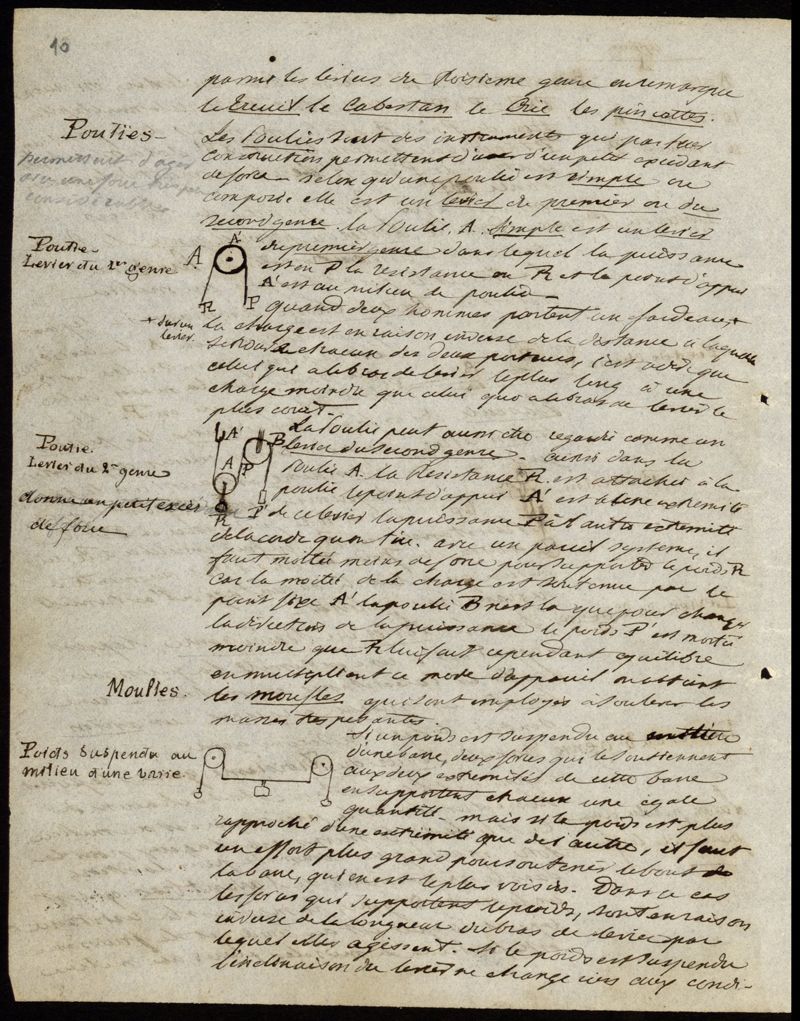 10
parmi les leviers du troisieme genre on remarque
le Treuil le Cabestan le Cric les pincettes.
Poulies -
Les Poulies sont des instruments qui par leur
construction permettent d'user d'un petit excédant
de force - selon qu'une poulie est simple ou
composée elle est un levier du premier ou du
second genre. la Poulie, A. simple est un levier
permettent d'agir
avec une force
considérable
Poulie -
Levier du 1er genre
A A'
R P
du premier genre dans lequel la puissance
est en P la résistance en R et le point d'appui
A' est au milieu de poulie -
quand deux hommes portent un fardeau, +
+ sur un
levier.
la charge est en raison inverse de la distance a laquelle
se trouve chacun des deux porteurs, c'est a dire que
celui qui a le bras de levier le plus long a une
charge moindre que celui qui a le bras de levier le
plus court -
Poulie.
Levier du 2me genre
donne un petit excès
de force
A' B
A P
R P'
La Poulie peut aussi être regardé comme un
levier du second genre - ainsi dans la
Poulie A. la Résistance R. est attachée à la
poulie le point d'appui A' est a l'une extremité
de ce levier la puissance P à l'autre extremité
de la corde qu'on tire. avec un pareil systeme, il
faut moitié moins de force pour supporter le poids R
car la moitié de la charge est soutenue par le
point fixe A' la poulie B n'est la que pour changer
la direction de la puissance le poids P' est moitié
moindre que R lui fait cependant equilibre
en multipliant ce mode d'appareil on obtient
Moufles.
les moufles qui sont employés à soulever les
masses très pesantes.
Poids suspendu au
milieu d'une barre.
Si un poids est suspendu au milieu
d'une barre, deux forces qui le soutiennent
aux deux extremités de cette barre
en supportent chacun une egale
quantité - mais si le poids est plus
rapproché d'une extremité que de l'autre, il faut
un effort plus grand pour soutenir le bout de
la barre, qui en est le plus voisin. Dans ce cas
les forces qui supportent le poids, sont en raison
inverse de la longueur du bras de levier par
lequel elles agissent. Si le poids est suspendu
l'inclinaison du levier ne change rien aux condi-